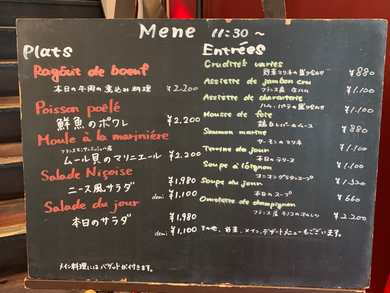 Mene 11:30~
Plats
Ragoût de boeuf
本日の牛肉の煮込み料理 ¥2.200
Poisson poêlé
鮮魚のポワレ ¥2.200
Moule à la marinière
ムール貝のマリニエール ¥2.200
Salade Niçoise
ニース風サラダ ¥1.980
demi ¥1.100
Salade du jour
本日のサラダ ¥1.980
demi ¥1.100
メイン料理にはバゲットが付きます。
Entrées
Crudités variées
野菜マリネの盛り合わせ ¥880
Assiette de jambon cru
フランス産 生ハム ¥1.100
Assiette de charcuterie
ハム、パテの盛り合わせ ¥1.100
Mousse de foie
鶏白レバーのムース ¥1.100
Saumon mariné
サーモンのマリネ ¥880
Terrine du jour
本日のテリーヌ ¥1.100
Soupe à l'oignon
オニオングラタンスープ ¥1.320
Soupe du jour
本日のスープ ¥660
Omelette de champignon
フランス産 キノコのオムレツ ¥2.200
その他、前菜、メイン、デザートメニューもございます。